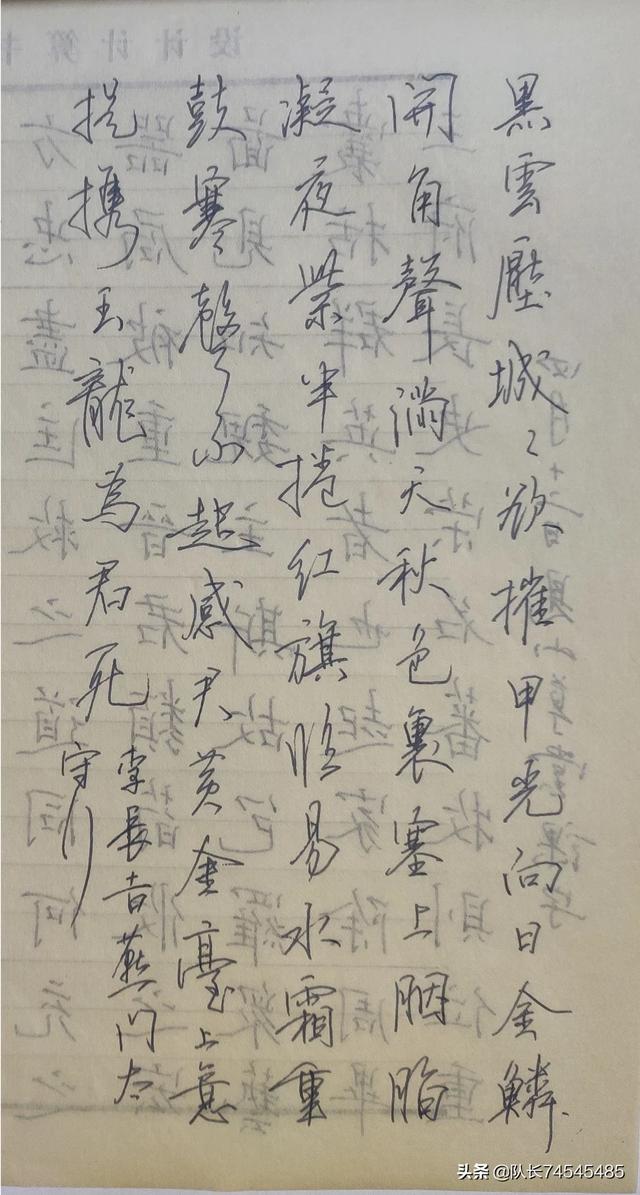 黑雲壓城〻欲摧甲光向日金鱗
開角聲滿天秋色裏塞上胭脂
凝夜紫半捲红旗临易水霜重
鼓寒聲不起感君黄金臺上意
提携玉龍為君死
李長吉燕门太
守行
头条 @队长74545485